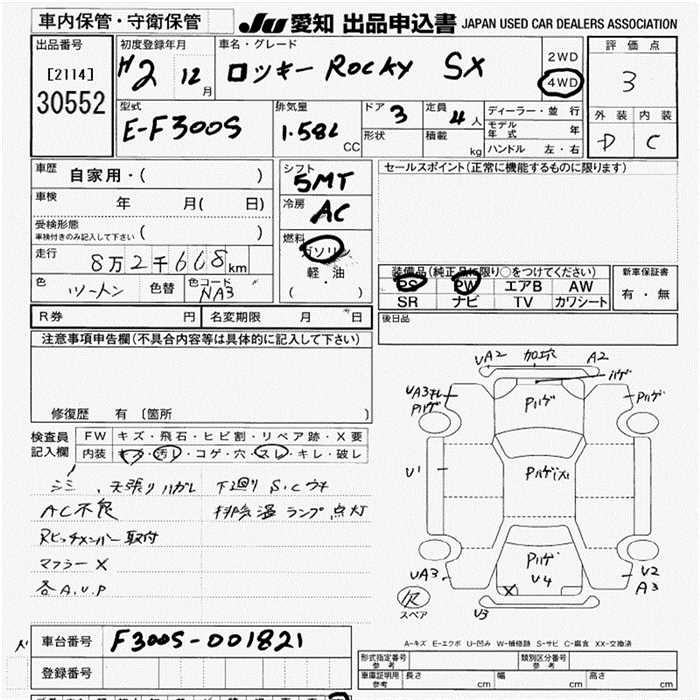 車内保管・守衛保管
JU 愛知 出品申込書 JAPAN USED CAR DEALERS ASSOCIATION
出品番号
[2114]
30552
初度登録年月
H2 12月
車名・グレード
ロッキー ROCKY SX
2WD
4WD
評価点
3
外装 内装
D C
型式
E-F300S
排気量
1.58L CC
ドア 3
形状
定員 4人
積載 kg
ディーラー・並行
モデル年式 年
ハンドル 左・右
車歴
自家用・( )
車検 年 月( 日)
受検形態
車検付きのみ記入して下さい ( )
走行
8万2千668km
色 ツートン 色替 色コード NA3
シフト
5MT
冷房
AC
燃料
ガソリン
軽・油
( )
セールスポイント(正常に機能するものに限ります)
装備品(純正品に限り○をつけてください)
PS PW エアB AW
SR ナビ TV カワシート
新車保証書
有・無
R券 円 名変期限 月 日
後日品
注意事項申告欄(不具合内容等は具体的に記入して下さい)
修復歴 有 〔箇所 〕
検査員記入欄
FW キズ・飛石・ヒビ割・リペア跡・X要
内装 キズ・汚レ・コゲ・穴・スレ・キレ・破レ
シミ、天張りハガレ 下廻り S.Cウキ
AC不良 排気温ランプ点灯
Rヒッチメンバー取付
マフラーX
各A.U.P
UA2 加工穴 A2
ハゲ
UA3キレ
ハゲ
Pハゲ
Pハゲ
U1
Pハゲ
UA3
Pハゲ
U4
X
U2
A3
U3
スペア
A-キズ E-エクボ U-凹み W-補修跡 S-サビ C-腐食 XX-交換済
車台番号 F300S-001821
登録番号
形式指定番号
参考
類別区分番号
参考
車庫証明用
参考
長さ cm 幅 cm 高さ cm